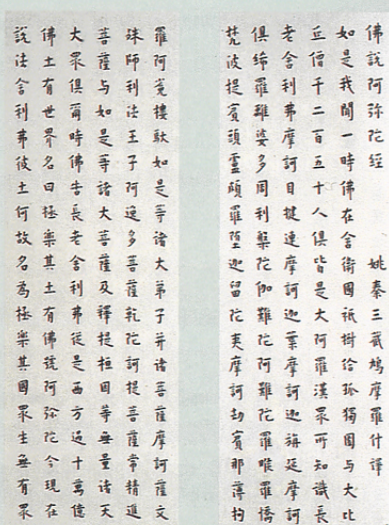 佛說阿弥陀經　姚秦三藏鳩摩羅什譯
如是我聞一時佛在舍衛國祇樹給孤獨園与大比
丘僧千二百五十人俱皆是大阿羅漢眾所知識長
老舍利弗摩訶目揵連摩訶迦葉摩訶迦旃延摩訶
俱絺羅離婆多周利槃陀伽難陀阿難陀羅睺羅憍
梵波提賓頭盧頗羅墮迦留陀夷摩訶劫賓那薄拘
羅阿㝹樓馱如是等諸大弟子并諸菩薩摩訶薩文
殊師利法王子阿逸多菩薩乾陀訶提菩薩常精進
菩薩与如是等諸大菩薩及釋提桓因等無量諸天
大眾俱爾時佛告長老舍利弗從是西方過十萬億
佛土有世界名曰極樂其土有佛號阿弥陀今現在
說法舍利弗彼土何故名為極樂其國眾生無有眾